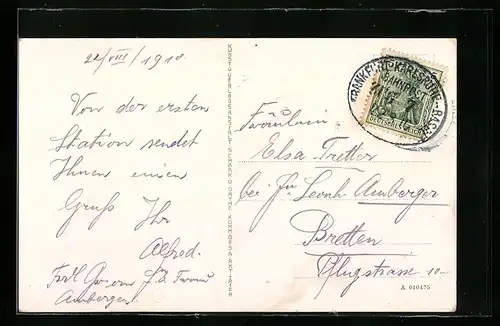 22/VIII/1910.
Von der ersten
Station sendet
Ihnen einen
Gruß Ihr
Alfred.
Amberger
KUNSTVERLAGSANSTALT SCHAAR & DATHE, KOMM.-GES. A. AKT. TRIER
FRANKFURT-KARLSRUHE-BASEL
DEUTSCHES REICH
Fräulein
Elsa Tretter
bei Leonh Amberger
Bretten
Pflugstrasse 10
A 010475